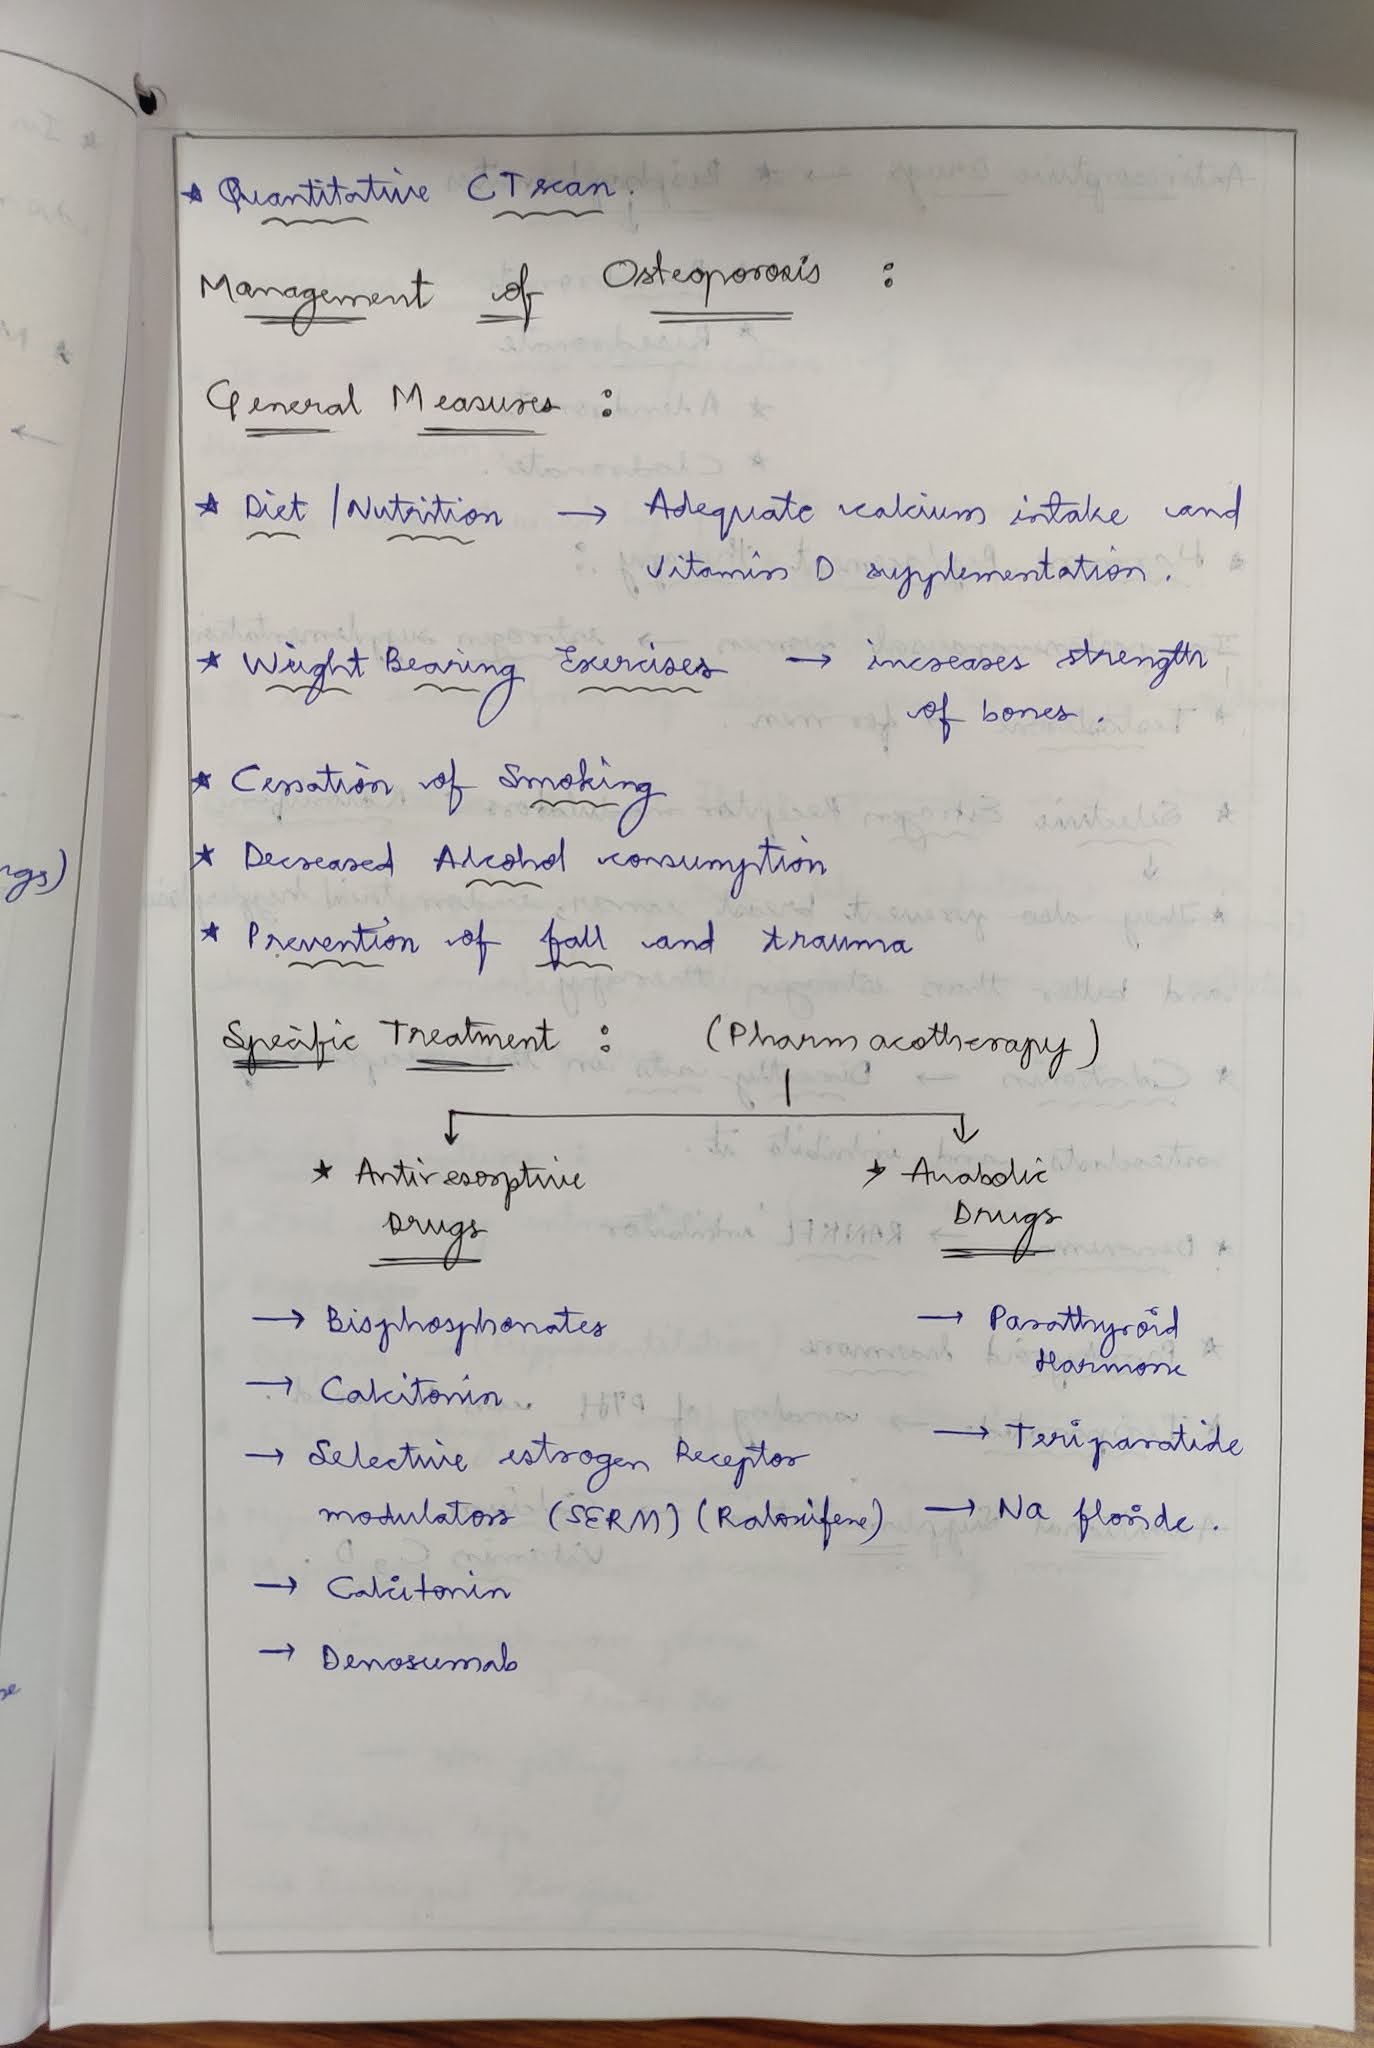 ★ Quantitative CT scan.
Management of Osteoporosis :
General Measures :
★ Diet / Nutrition → Adequate calcium intake and
vitamin D supplementation.
★ Weight Bearing Exercises → increases strength
of bones.
★ Cessation of Smoking
★ Decreased Alcohol consumption
★ Prevention of fall and trauma
Specific Treatment : (Pharmacotherapy)
★ Antiresorptive
Drugs
→ Bisphosphonates
→ Calcitonin
→ Selective estrogen Receptor
modulators (SERM) (Raloxifene)
→ Calcitonin
→ Denosumab
★ Anabolic
Drugs
→ Parathyroid
Harmone
→ Teriparatide
→ Na floride.